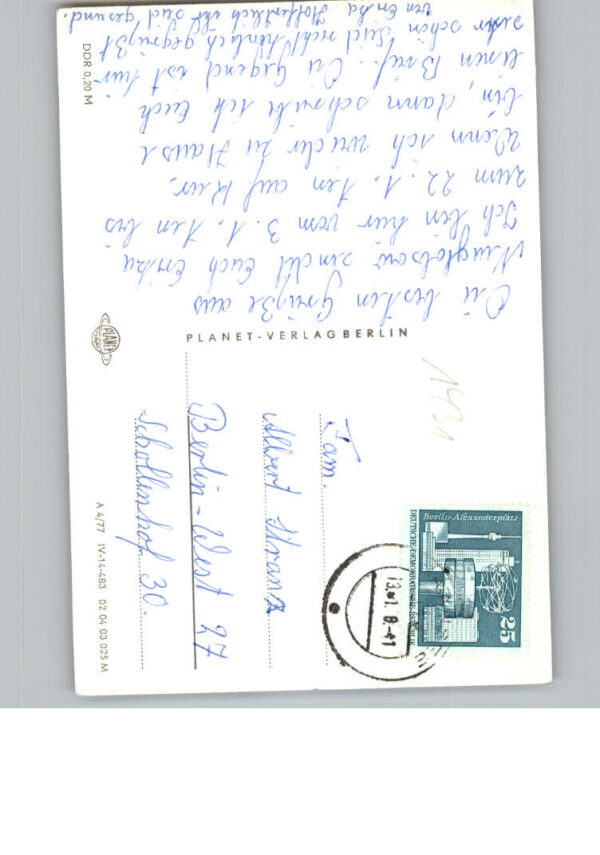 Die besten Grüße aus
Neuglobsow sendet Euch Erika
Ich bin hier vom 3. 1. ten bis
zum 22. 1. ten auf Kur.
Wenn ich wieder zu Hause
bin, dann schreibe ich Euch
einen Brief. Die Gegend ist hier
sehr schön. Seid recht herzlich gegrüßt
von Erika Hoffentlich ihr seid gesund.
DDR 0,20 M
PLANET-VERLAG BERLIN
PLANET
1431
Fam.
Albert
Berlin-West 27
Schollenhof 30.
A 4/77 IV-14-483 02 04 03 025 M
Berlin-Alexanderplatz
DEUTSCHE DEMOKRATISCHE REPUBLIK
25
13.-1. 8.-41